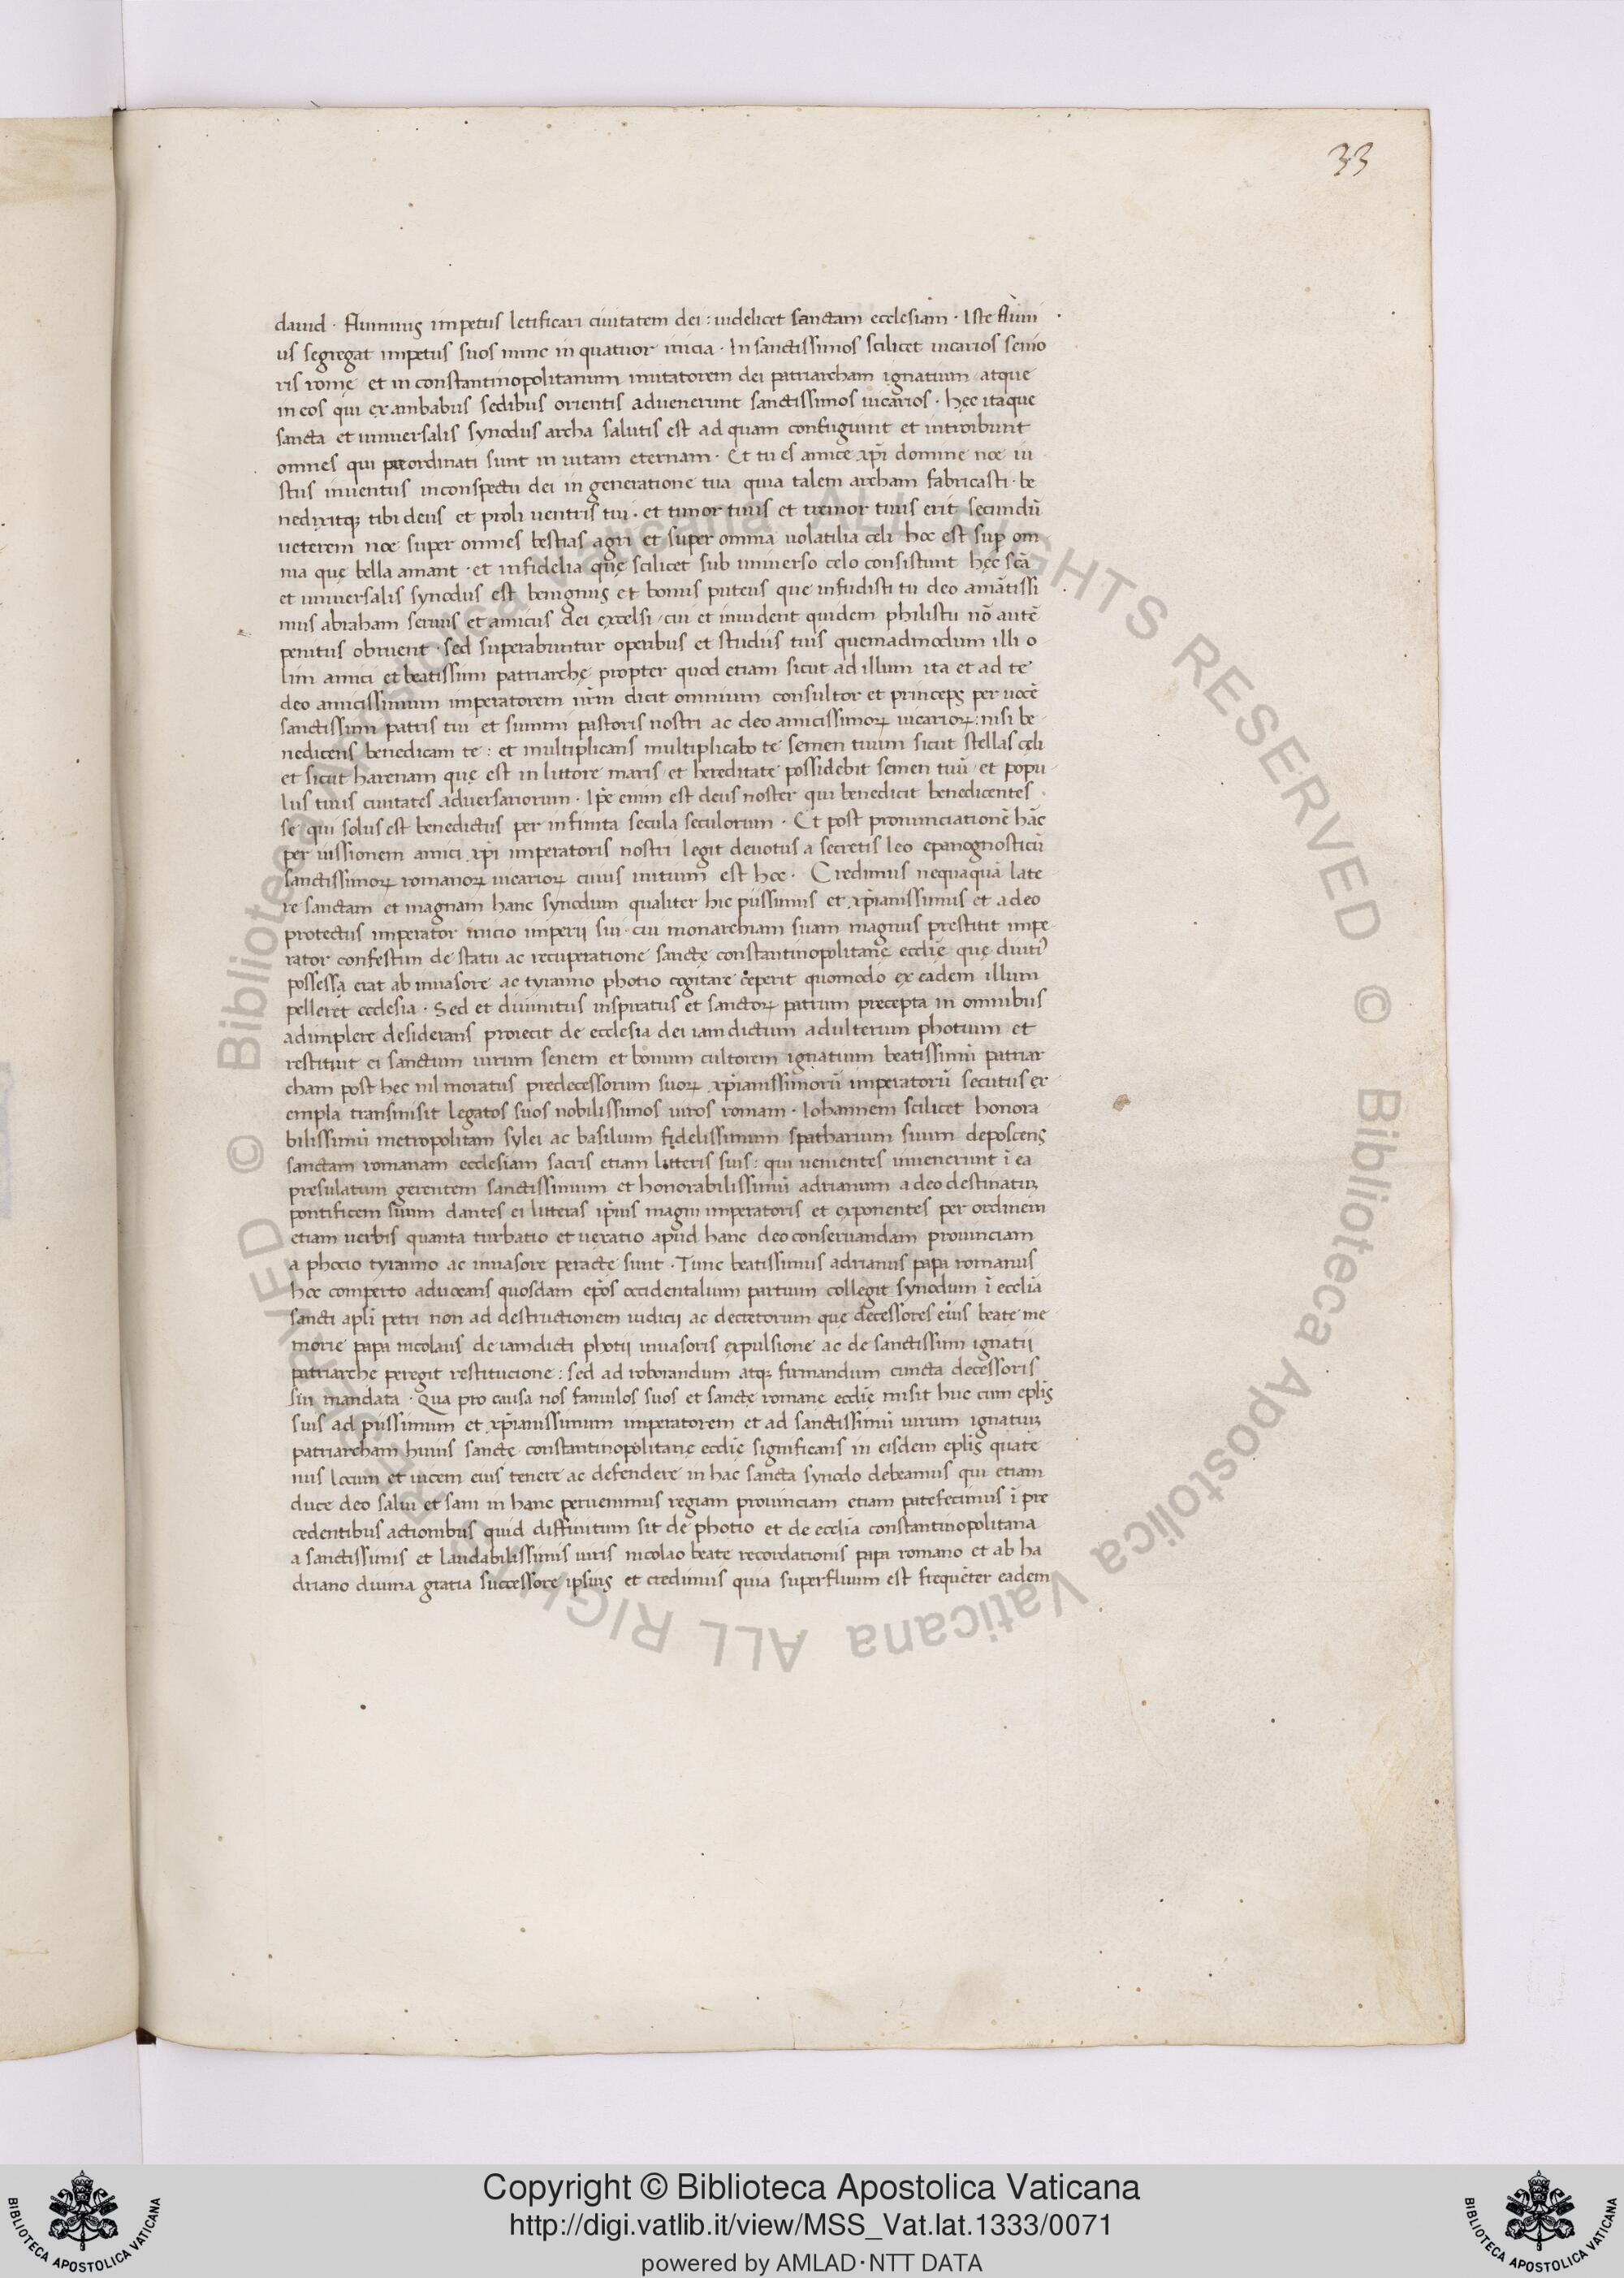 33
dauid · fluminis impetus letificari ciuitatem dei : uidelicet sanctam ecclesiam · Iste flūui
us segregat impetus suos nunc in quatuor inicia · In sanctissimos scilicet uicarios senio
ris romę et in constantinopolitanum imitatorem dei patriarcham ignatium atque
in eos qui ex ambabus sedibus orientis aduenerunt sanctissimos uicarios · hęc itaque
sancta et uniuersalis synodus archa salutis est ad quam confugiunt et introibunt
omnes qui preordinati sunt in uitam eternam · Et tu es amice xp̄i domine noe iu
stus inuentus inconspectu dei in generatione tua quia talem archam fabricasti · be
nedixitqꝫ tibi deus et proli uentris tui · et timor tuus et tremor tuus erit secundū
ueterem noe super omnes bestias agri et super omnia uolatilia cęli hoc est sup̄ om
nia quę bella amant · et infidelia quę scilicet sub uniuerso celo consistunt hęc scā
et uniuersalis synodus est benignus et bonus puteus que infudisti tu deo amātissi
mus abraham seruus et amicus dei excelsi · cui et inuident quidem philistii nō autē
penitus obruent · sed superabuntur operibus et studiis tuis quemadmodum illi o
lim amici et beatissimi patriarchę propter quod etiam sicut ad illum ita et ad te
deo amicissimum imperatorem nr̄m dicit omnium consultor et princeps per uocē
sanctissimi patris tui et summi pastoris nostri ac deo amicissimoꝝ uicarioꝝ : nisi be
nedicens benedicam te : et multiplicans multiplicabo te semen tuum sicut stellas cęli
et sicut harenam quę est in littore maris et hereditate possidebit semen tuū et popu
lus tuus ciuitates aduersariorum · Ip̄e enim est deus noster qui benedicit benedicentes
se qui solus est benedictus per infinita secula seculorum · Et post pronunciationē hāc
per iussionem amici xp̄i imperatoris nostri legit deuotus a secretis leo epanognosticū
sanctissimoꝝ romanoꝝ uicarioꝝ cuius initium est hoc · Credimus nequaquā late
re sanctam et magnam hanc synodum qualiter hic piissimus et xp̄ianissimus et a deo
protectus imperator inicio imperij sui · cui monarchiam suam magnus prestitit impe
rator confestim de statu ac recuperatione sanctę constantinopolitanę ecclię quę diuti᾽
possessa erat ab inuasore ac tyranno photio cogitare cęperit quomodo ex eadem illum
pelleret ecclesia · Sed et diuinitus inspiratus et sanctoꝝ patrum precepta in omnibus
adimplere desiderans proiecit de ecclesia dei iamdictum adulterum photium et
restituit ei sanctum uirum senem et bonum cultorem ignatium beatissimū patriar
cham post hęc nil moratus predecessorum suoꝝ xp̄ianissimorū imperatorū secutus ex
empla transmisit legatos suos nobilissimos uiros romam · Iohannem scilicet honora
bilissimū metropolitam sylei ac basilium fidelissimum spatharium suum deposcens
sanctam romanam ecclesiam sacris etiam litteris suis : qui uenientes inuenerunt ī ea
presulatum gerentem sanctissimum et honorabilissimū adrianum a deo destinatuꝫ
pontificem suum dantes ei litteras ip̄ius magni imperatoris et exponentes per ordinem
etiam uerbis quanta turbatio et uexatio apud hanc deo conseruandam prouinciam
a phocio tyranno ac inuasore peracte sunt · Tunc beatissimus adrianus papa romanus
hoc comperto aduocans quosdam ep̄os occidentalium partium collegit synodum ī ecclīa
sancti apl̄i petri non ad destructionem iudicij ac decretorum que decessores eius beate me
morie papa nicolaus de iamdicti photii inuasoris expulsione ac de sanctissimi ignatii
patriarche peregit restitucione : sed ad roborandum atqꝫ firmandum cuncta decessoris
sui mandata · Qua pro causa nos famulos suos et sanctę romanę ecclię misit huc cum epl̄is
suis ad piissimum et xp̄ianissimum imperatorem et ad sanctissimū uirum ignatiuꝫ
patriarcham huius sanctę constantinopolitanę ecclię significans in eisdem epl̄is quate
nus locum et uicem eius tenere ac defendere in hac sancta synodo debeamus qui etiam
duce deo salui et sani in hanc peruenimus regiam prouinciam etiam patefecimus ī pre
cedentibus actionibus quid diffinitum sit de photio et de ecclīa constantinopolitana
a sanctissimis et laudabilissimis uiris nicolao beate recordationis papa romano et ab ha
driano diuina gratia successore ipsius et credimus quia superfluum est frequēter eadem
© Biblioteca Apostolica Vaticana ALL RIGHTS RESERVED © Biblioteca Apostolica Vaticana ALL RIGHTS RESERVED
BIBLIOTECA APOSTOLICA VATICANA
Copyright © Biblioteca Apostolica Vaticana
http://digi.vatlib.it/view/MSS_Vat.lat.1333/0071
powered by AMLAD·NTT DATA
BIBLIOTECA APOSTOLICA VATICANA